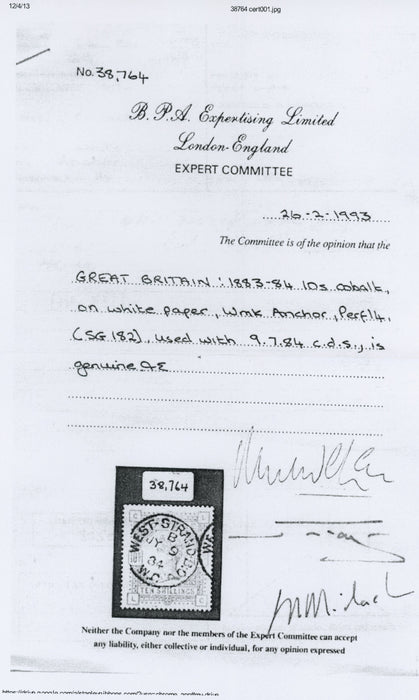 12/4/13
38764 cert001.jpg
No. 38,764
B.P.A. Expertising Limited
London-England
EXPERT COMMITTEE
26-2-1993
The Committee is of the opinion that the
GREAT BRITAIN : 1883-84 10s cobalt,
on white paper, Wmk Anchor, Perf 14,
(SG 182), used with 9.7.84 c.d.s., is
genuine
38,764
WEST-STRAND B.O.
B
JY 9
84
W.C.
TEN SHILLINGS
Neither the Company nor the members of the Expert Committee can accept
any liability, either collective or individual, for any opinion expressed